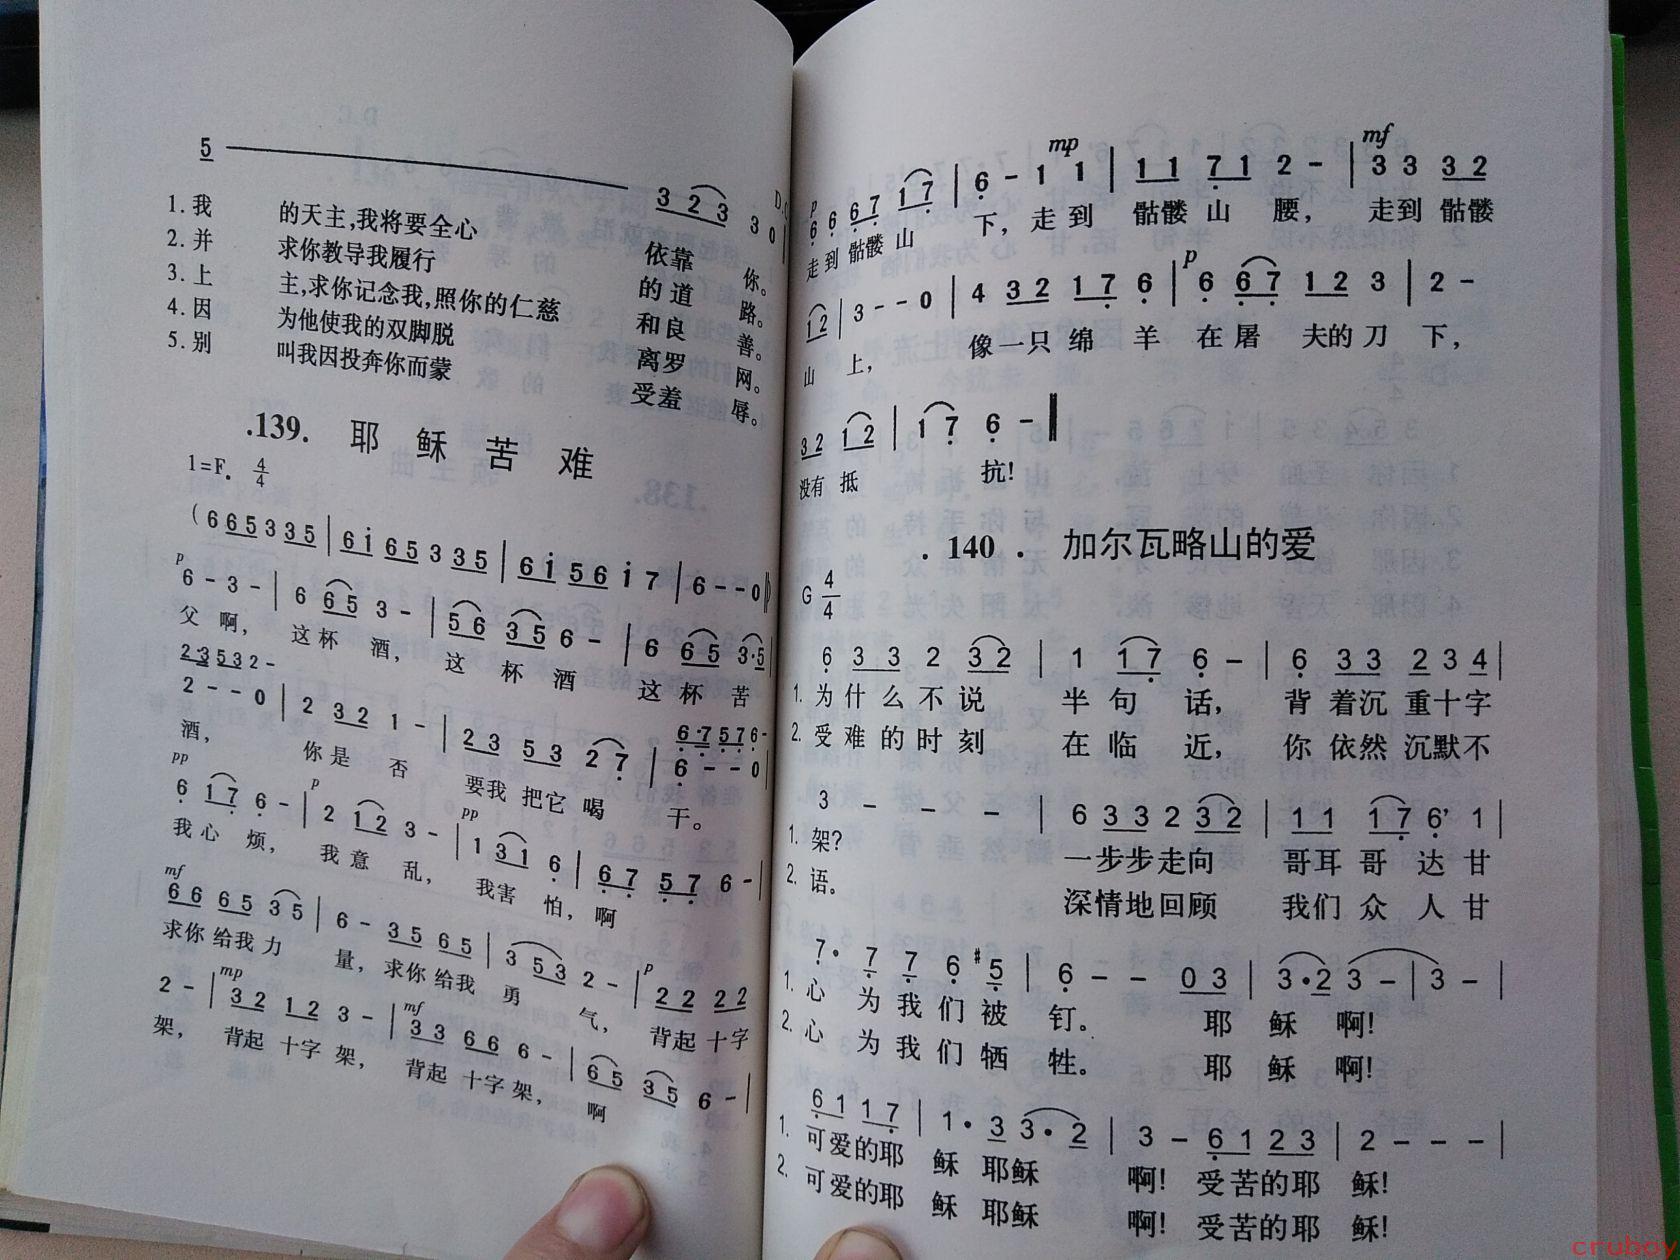 5 3 2 3 3 0 D.C
1. 我 的天主,我将要全心 依靠 你。
2. 并 求你教导我履行 的道 路。
3. 上 主,求你记念我,照你的仁慈 和良 善。
4. 因 为他使我的双脚脱 离罗 网。
5. 别 叫我因投奔你而蒙 受羞 辱。
.139. 耶 稣 苦 难
1=F. 4/4
( 6 6 5 3 3 5 | 6 i 6 5 3 3 5 | 6 i 5 6 i 7 | 6 - - 0 )
p
6 - 3 - | 6 6 5 3 - | 5 6 3 5 6 - | 6 6 5 3·5 |
父 啊, 这 杯 酒, 这 杯 酒 这 杯 苦
2·3 5 3 2 -
2 - - 0 | 2 3 2 1 - | 2 3 5 3 2 7 | 6 - - 0 |
6·7 5 7 6 -
酒, 你 是 否 要我 把它 喝 干。
pp p pp
6 1 7 6 - | 2 1 2 3 - | 1 3 1 6 | 6 7 5 7 6 - |
我 心 烦, 我 意 乱, 我害 怕, 啊
mf p
6 6 6 5 3 5 | 6 - 3 5 6 5 | 3 5 3 2 - | 2 2 2 2
求你 给我 力 量, 求你 给我 勇 气, 背起 十字
mp mf
2 - | 3 2 1 2 3 - | 3 3 6 6 6 - | 6 5 3 5 6 - |
架, 背起 十字 架, 背起 十字 架, 啊
p mp mf
6 6 6 7 1 7 | 6 - 1 1 | 1 1 7 1 2 - | 3 3 3 2
走 到 骷髅 山 下, 走 到 骷髅 山 腰, 走到 骷髅
p
1 2 | 3 - - 0 | 4 3 2 1 7 6 | 6 6 7 1 2 3 | 2 -
山 上, 像 一只 绵 羊 在 屠 夫的 刀 下,
3 2 1 2 | 1 7 6 -
没有 抵 抗!
. 140 . 加尔瓦略山的爱
G 4/4
6 3 3 2 3 2 | 1 1 7 6 - | 6 3 3 2 3 4 |
1. 为 什 么 不 说 半 句 话, 背 着沉 重十字
2. 受 难 的 时 刻 在 临 近, 你 依然 沉默不
3 - - - | 6 3 3 2 3 2 | 1 1 1 7 6’ 1 |
1. 架? 一步步走向 哥耳 哥 达 甘
2. 语。 深情地回顾 我们 众 人 甘
7· 7 7 6 #5 | 6 - - 0 3 | 3·2 3 - | 3 - |
1. 心 为 我 们 被 钉。 耶 稣 啊!
2. 心 为 我 们 牺 牲。 耶 稣 啊!
6 1 1 7 | 1· 3 3· 2 | 3 - 6 1 2 3 | 2 - - - |
1. 可爱的耶 稣 耶稣 啊! 受苦的耶 稣!
2. 可爱的耶 稣 耶稣 啊! 受苦的耶 稣!
cruboy